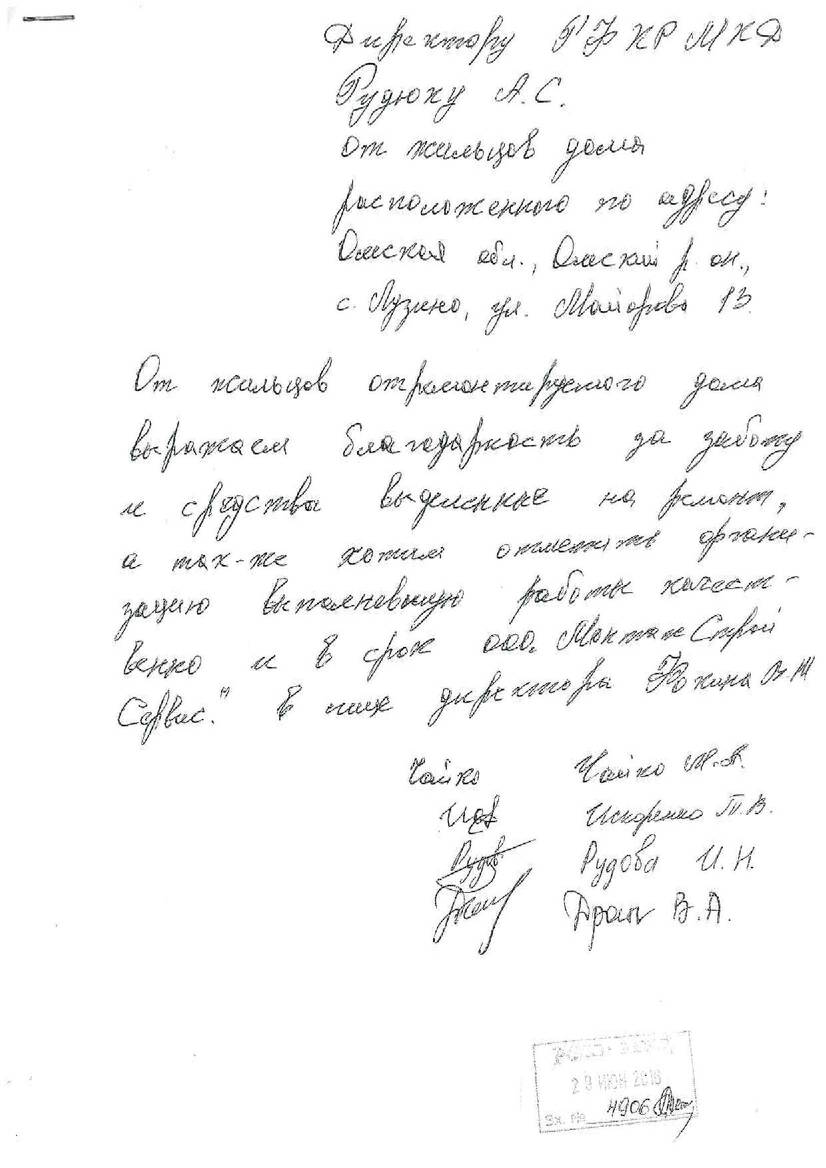 Директору РФКРМКД
Рудюку А.С.
От жильцов дома
расположенного по адресу:
Омская обл., Омский р. он.,
с. Лузино, ул. Майорова 13
От жильцов отремонтируемого дома
выражаем благодарность за заботу
и средства выделенные на ремонт,
а так-же хотим отметить органи-
зацию выполневшую работы качест-
венно и в срок ООО "МонтажСтрой
Сервис." В лице директора
Чайко Чайко М.А.
Искоренко Т.В.
Рудов Рудова И.Н.
В.А.
29 ИЮН 2016
Вх. № 4906